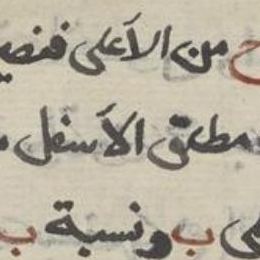 ح من الأعلى فنصي
مطلق الأسفل
ى ب ونسبة ب